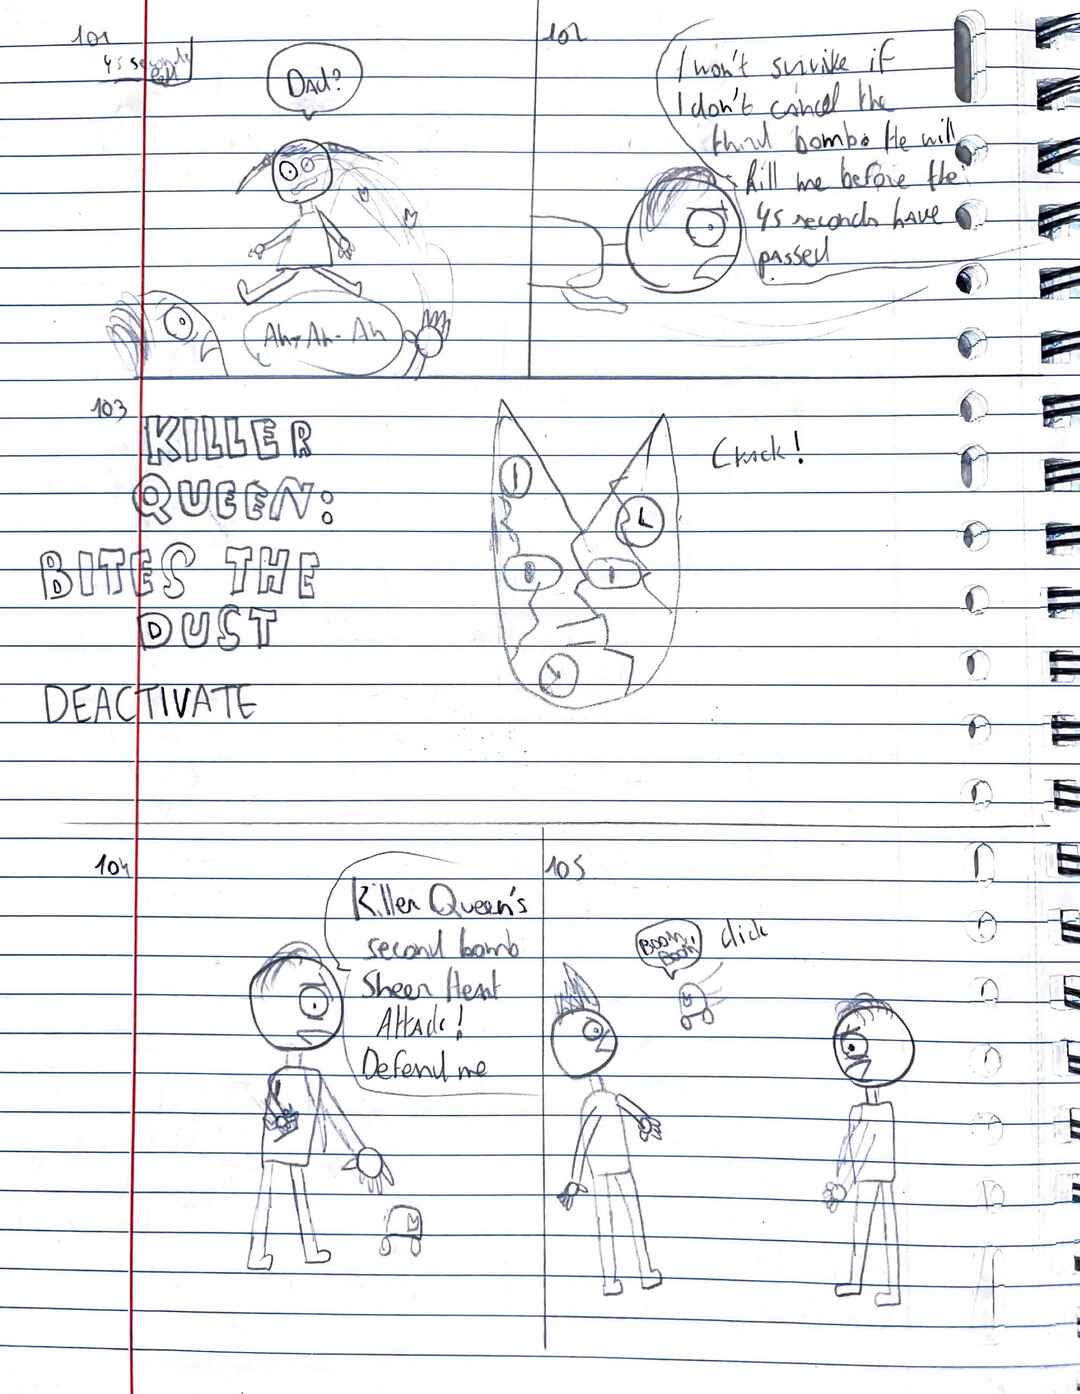 101
45 seconds
left
Dad?
Ah-Ah-Ah
102
I won't survive if
I don't cancel the
third bomb. He will
kill me before the
45 seconds have
passed
103
KILLER
QUEEN:
BITES THE
DUST
DEACTIVATE
Crack!
104
Killer Queen's
second bomb
Sheer Heart
Attack!
Defend me
105
BOOM
BOOM!
click